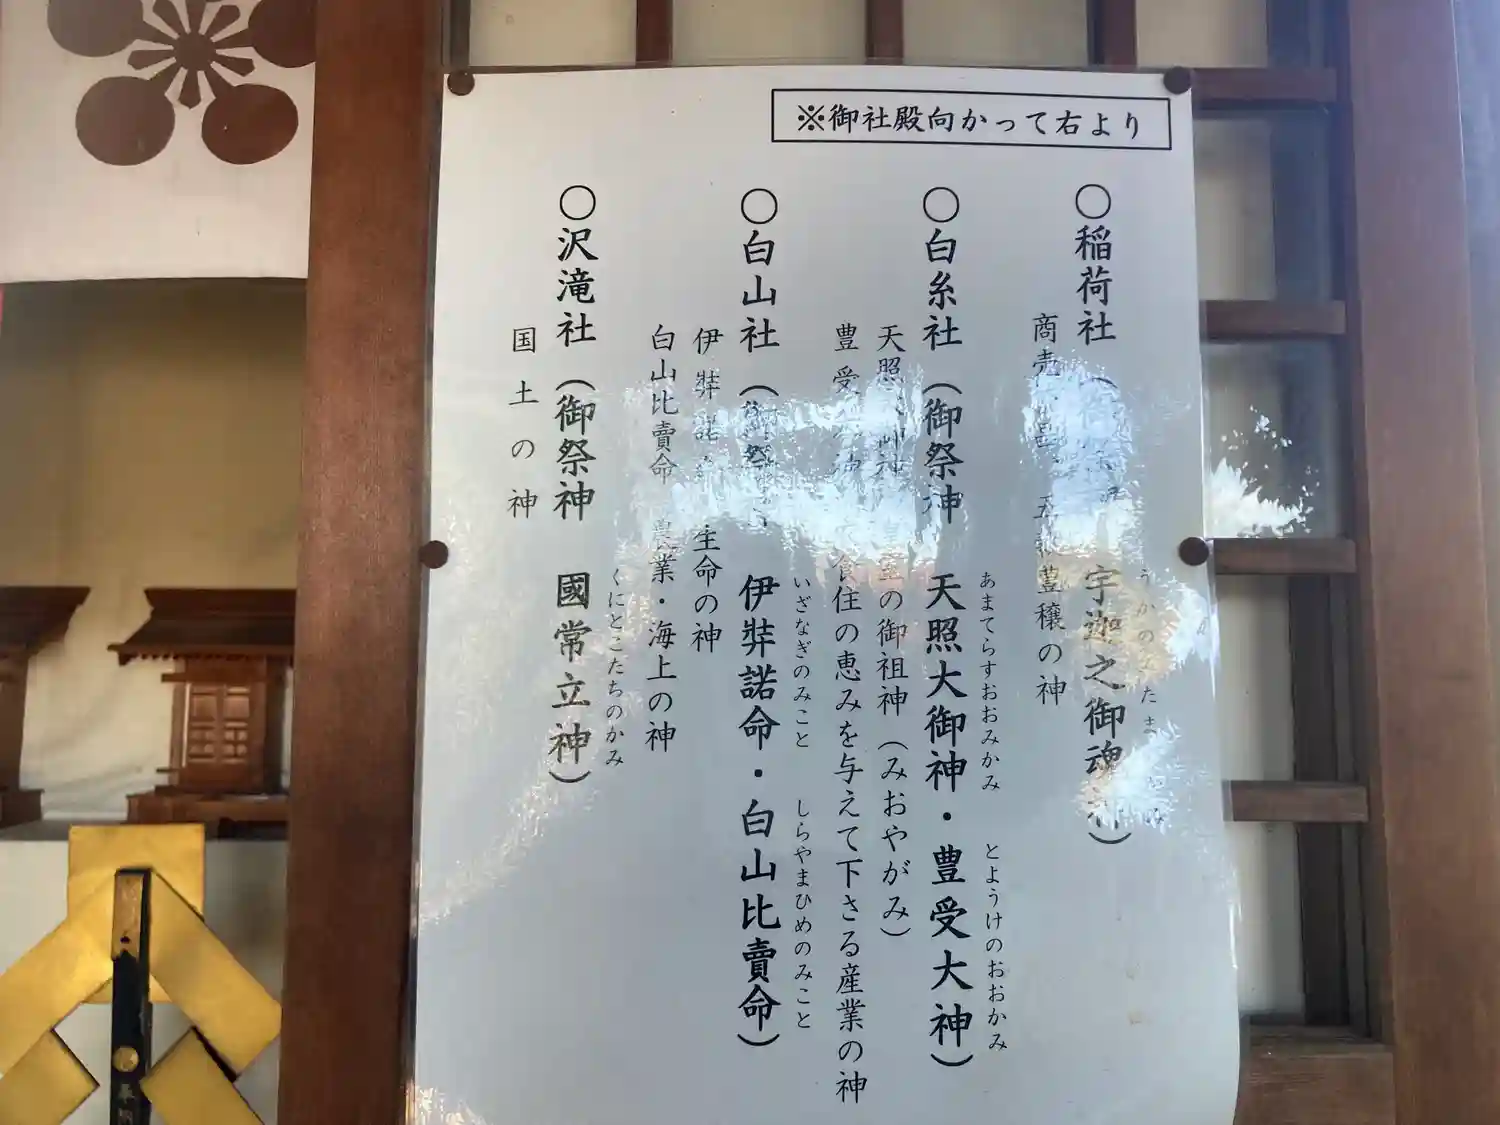 ※御社殿向かって右より
〇稲荷社（御祭 宇迦之御魂神）
うかの たま
商売 五穀豊穣の神
〇白糸社（御祭神 天照大御神・豊受大神）
あまてらすおおみかみ とようけのおおかみ
天照 御神 の御祖神（みおやがみ）
豊受 食住の恵みを与えて下さる産業の神
〇白山社（御祭 伊弉諾命・白山比賣命）
いざなぎのみこと しらやまひめのみこと
伊弉諾 生命の神
白山比賣命 農業・海上の神
〇沢滝社（御祭神 國常立神）
くにとこたちのかみ
国土の神